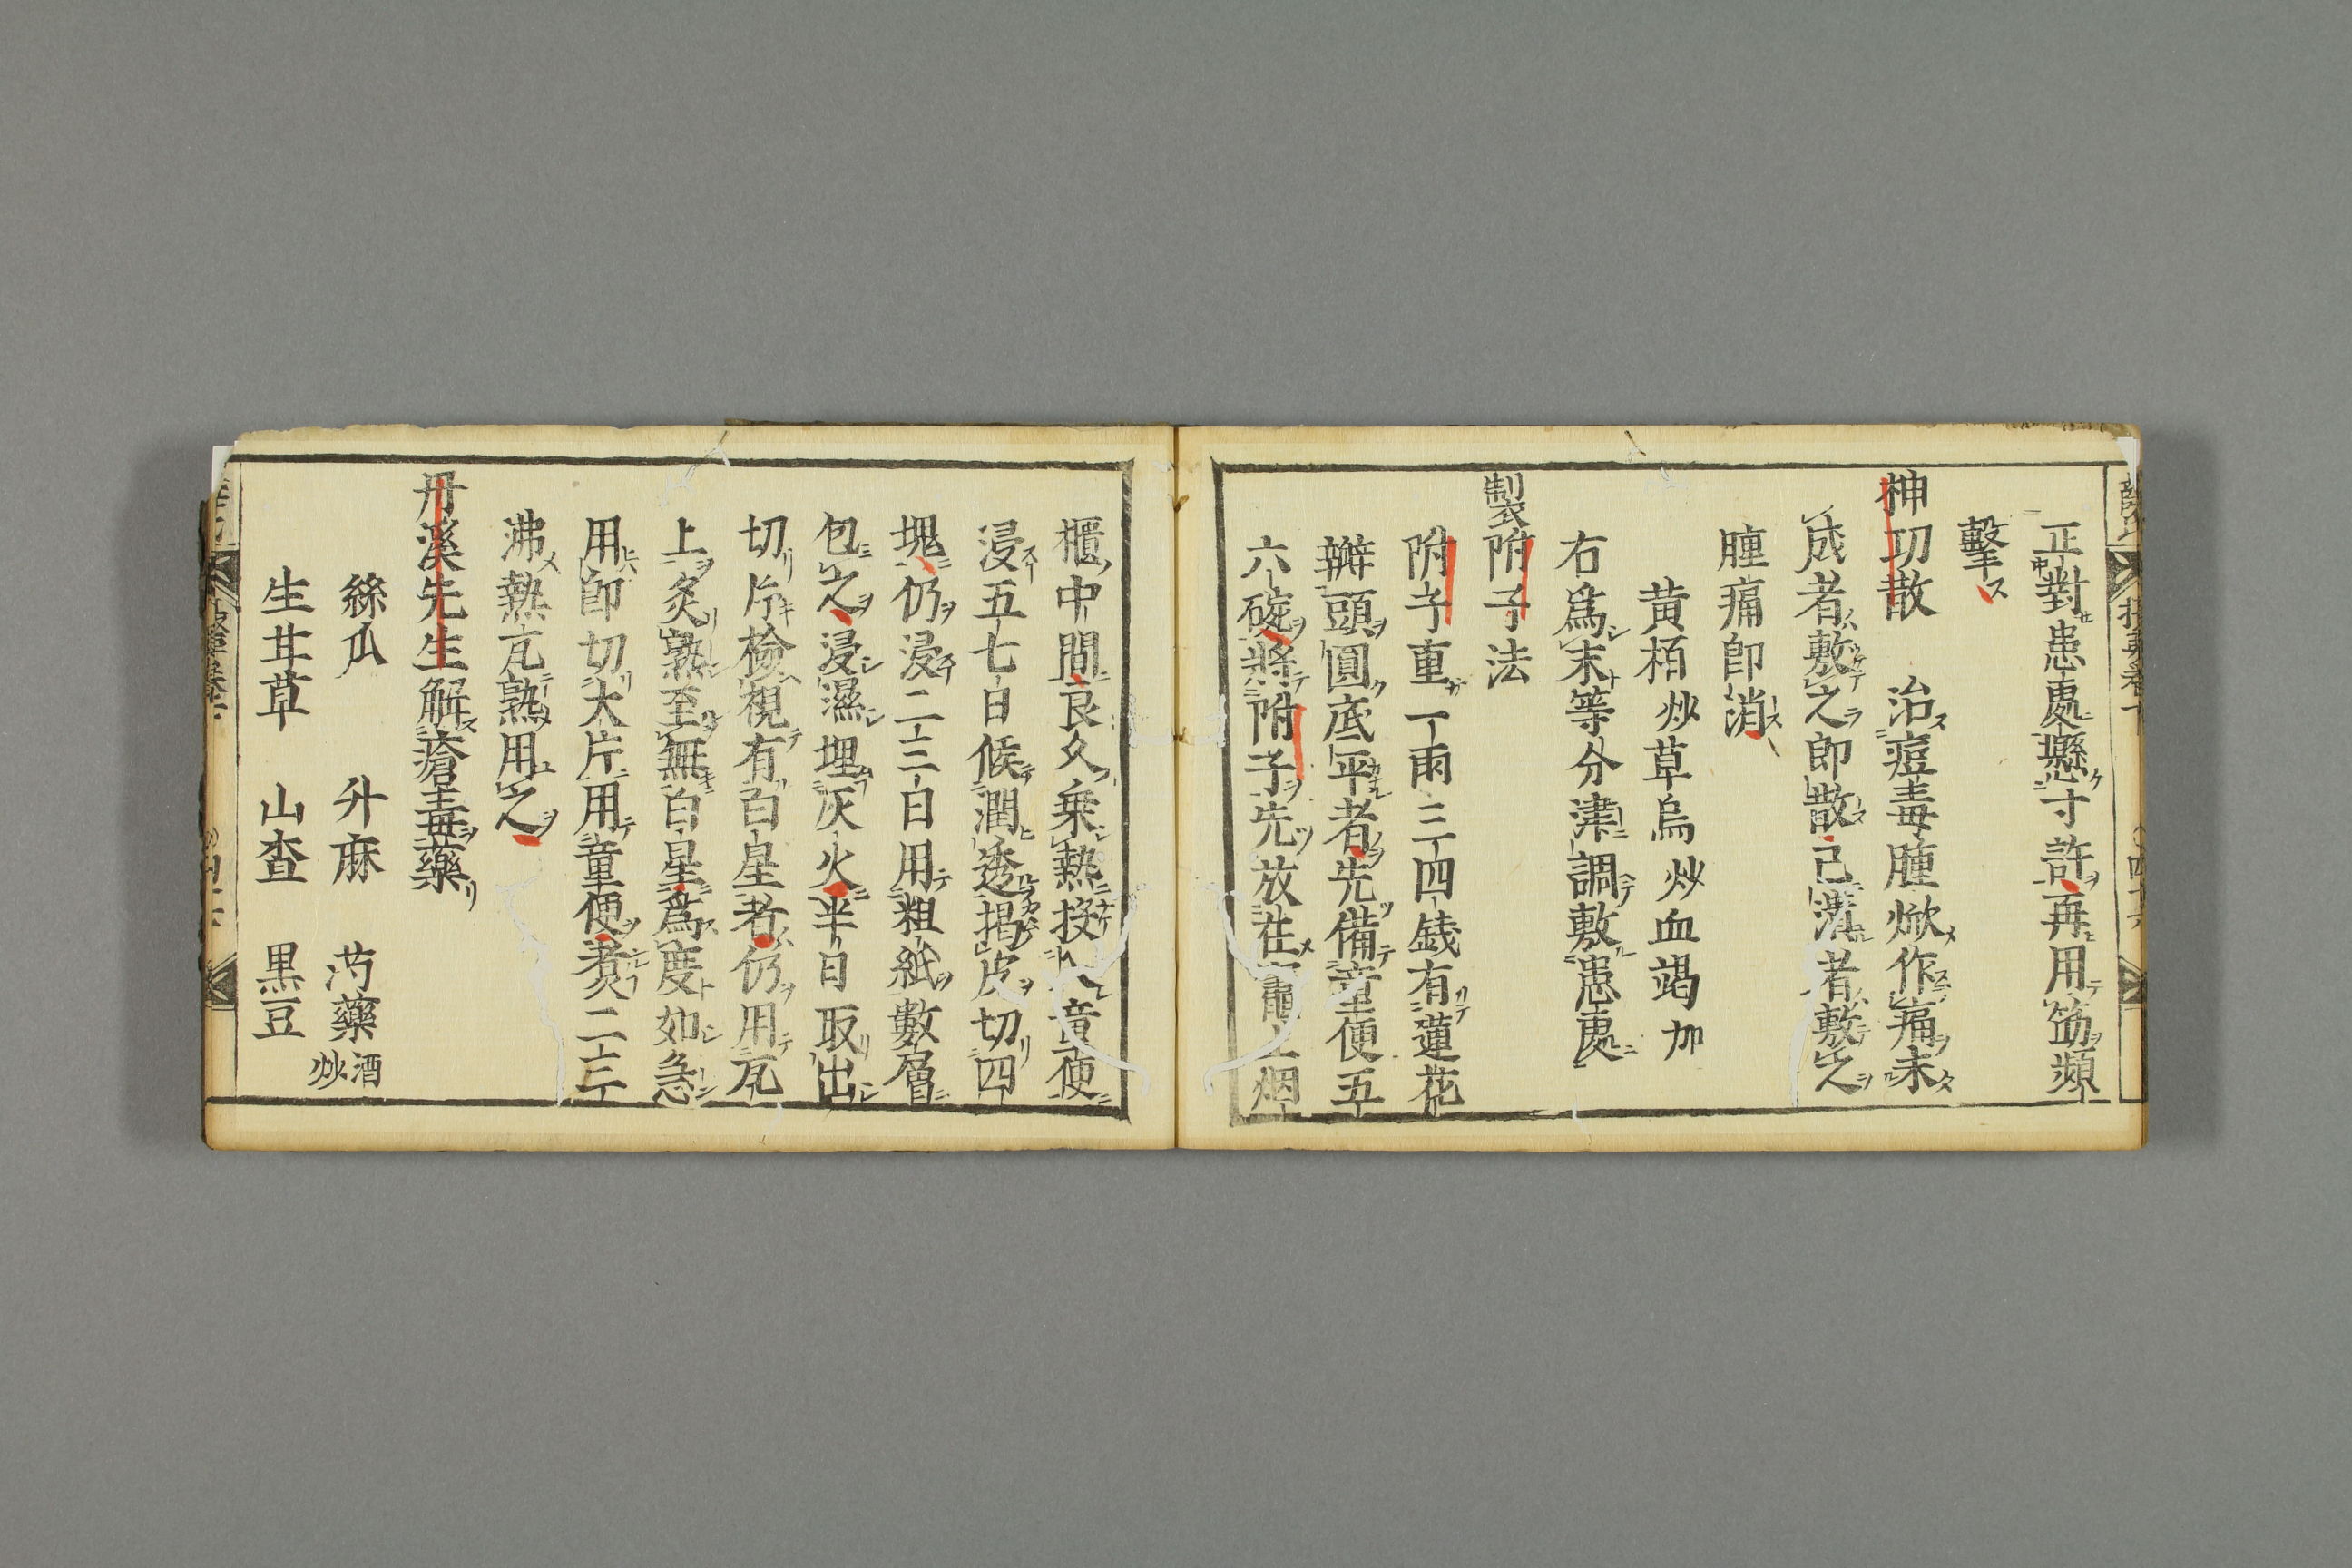 正對患處懸寸許再用筯頻
擊
神功散　治痘毒腫焮作痛未
成者敷之即散已潰者敷之
腫痛即消
黄栢炒草烏炒血竭加
右爲末等分津調敷患處
製附子法
附子重一兩三四錢有蓮花
瓣頭圓底平者先備童便五
六碗將附子先放在竈上烟
櫃中間良久乗熱投入童便
浸五七日候潤透掲皮切四
塊仍浸二三日用粗紙數層
包之浸濕埋灰火半日取出
切片檢視有白星者仍用瓦
上炙熟至無白星爲度如急
用即切大片用童便煮二三
沸熱瓦熟用之
丹溪先生解瘡毒藥
絲瓜　升麻　芍藥酒炒
生甘草　山査　黒豆